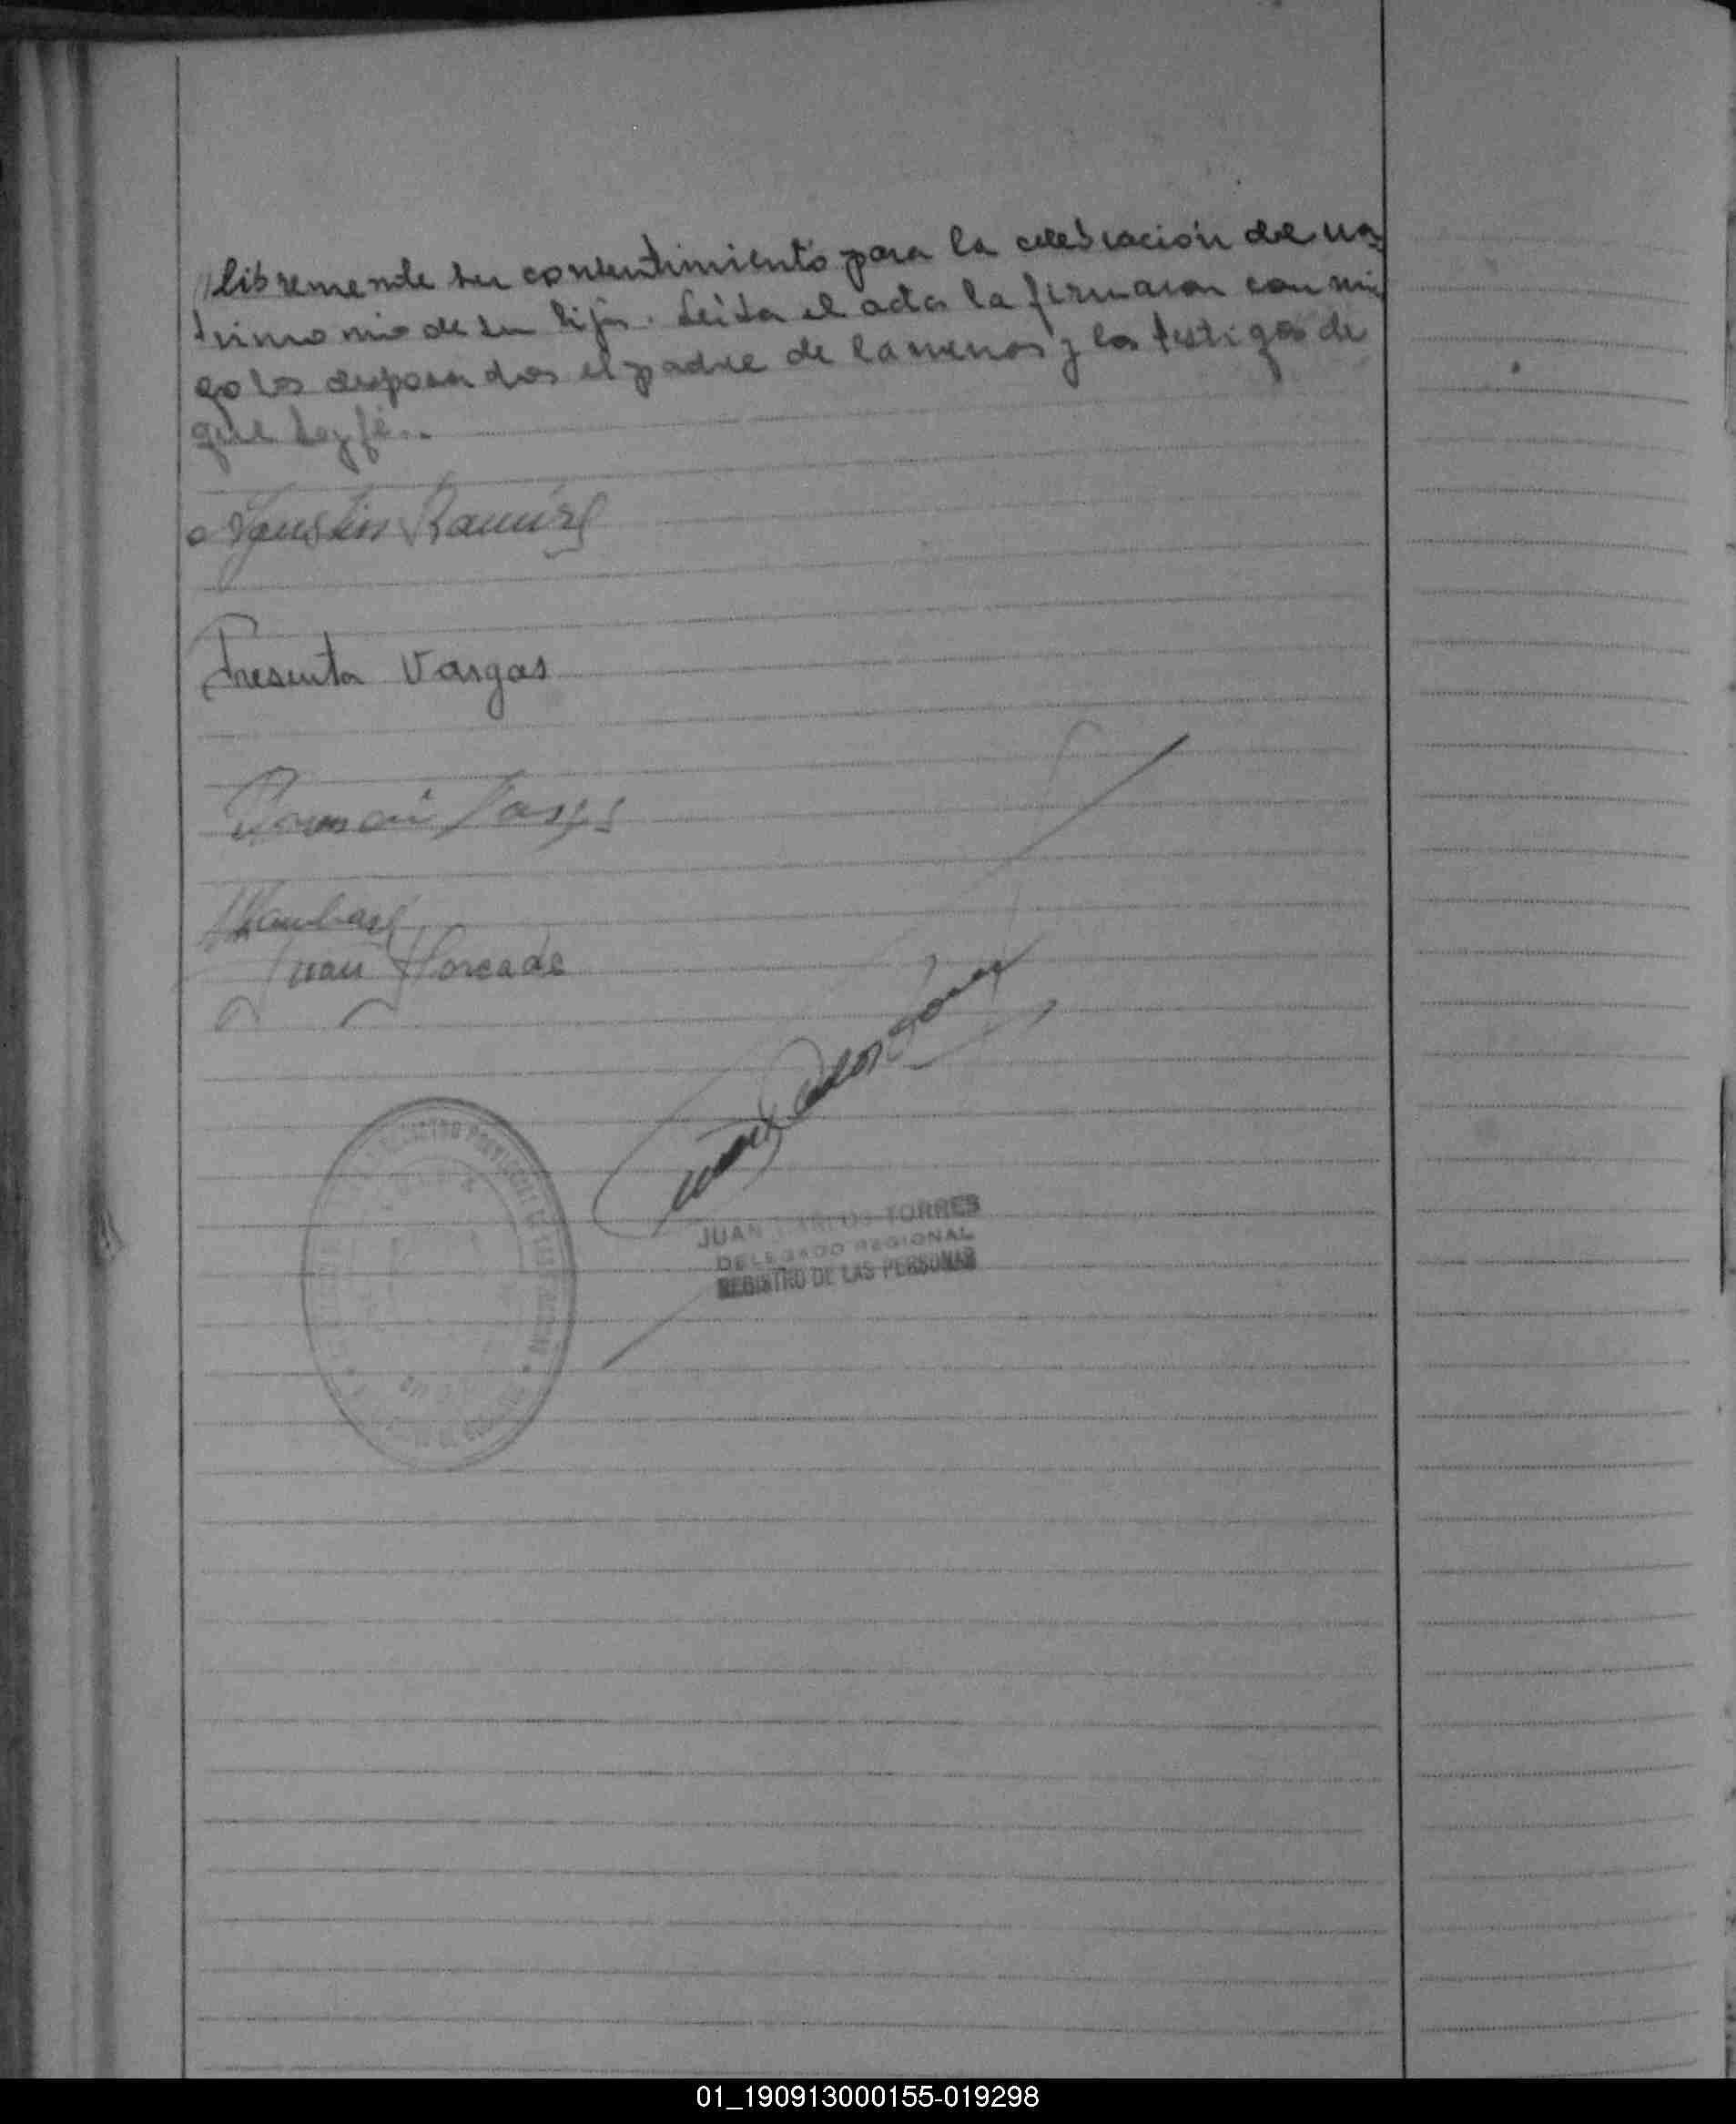 libremente su consentimiento para la celebración de ma
trimonio de su hija. Leida el acta la firmaron con mi
go los desposados el padre de la menor y los testigos de
que doy fé..
Agustin Ramirez
Presenta Vargas
Ramón
Juan Forcada
JUAN CARLOS TORRES
DELEGADO REGIONAL
REGISTRO DE LAS PERSONAS
01_190913000155-019298